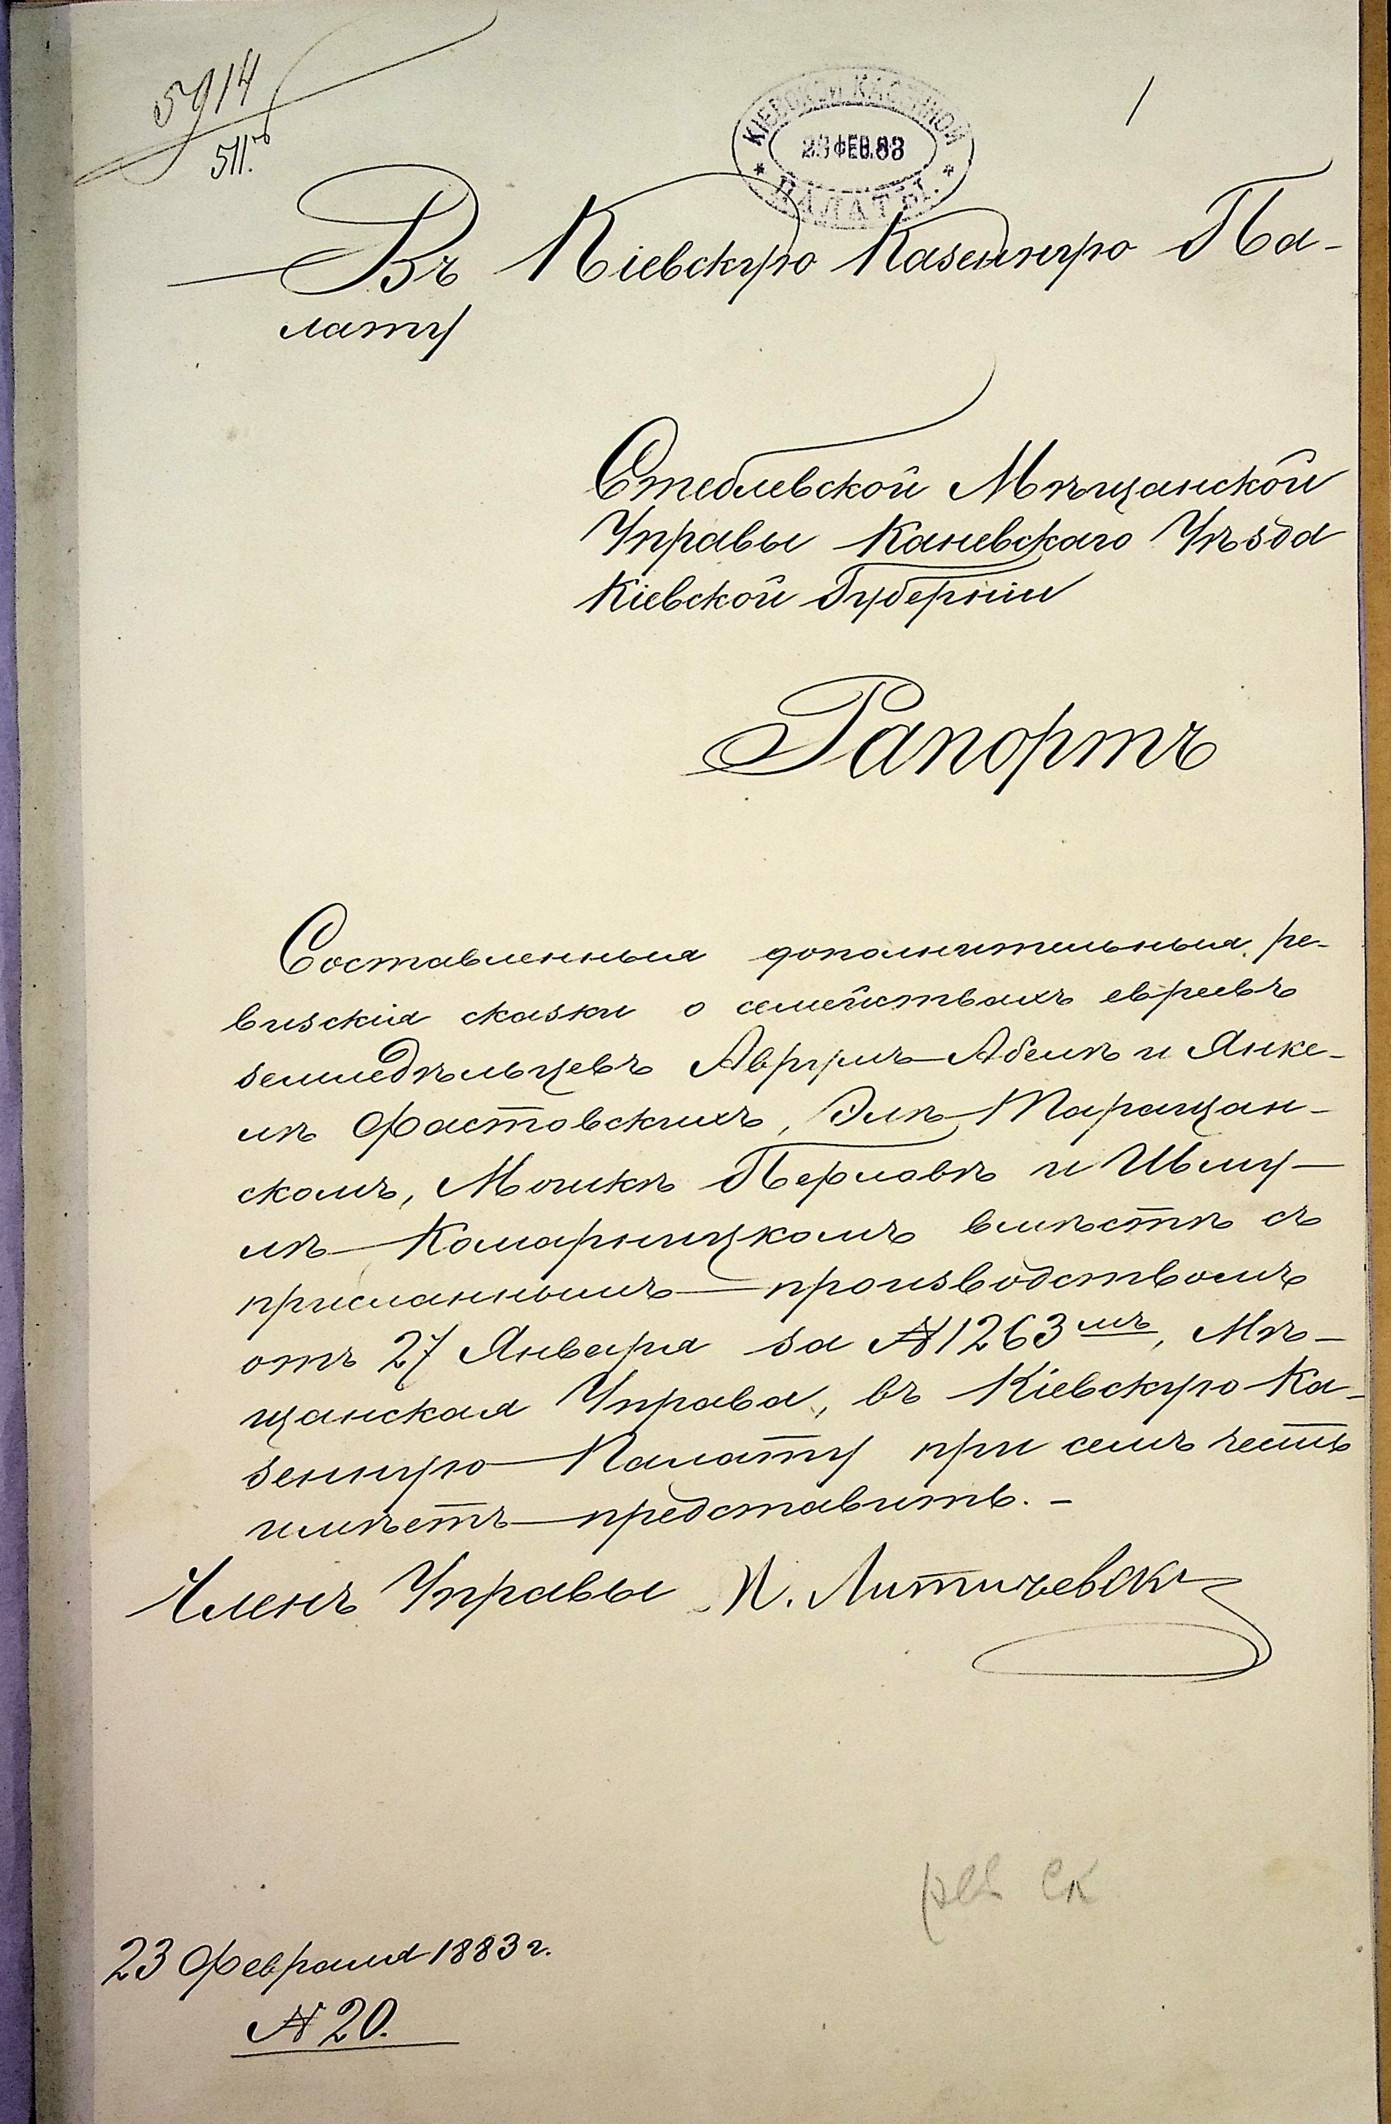 5914
511.
КІЕВСКОЙ КАЗЕННОЙ
23 ФЕВ. 83
ПАЛАТЫ.
1
Въ Кіевскую Казенную Па-
лату
Стеблевской Мѣщанской
Управы Каневскаго Уѣзда
Кіевской Губерніи
Рапортъ
Составленныя дополнительныя ре-
визскія сказки о семействахъ евреевъ
земледѣльцевъ Аврумъ-Абелѣ и Янке-
лѣ Фастовскихъ, Элѣ Таращан-
скомъ, Мошкѣ Перловѣ и Шму-
лѣ Комарницкомъ вмѣстѣ съ
присланнымъ производствомъ
отъ 27 Января за № 1263мъ, Мѣ-
щанская Управа, въ Кіевскую Ка-
зенную Палату при семъ честь
имѣетъ представить. -
Членъ Управы И. Литичевск
рев ск
23 Февраля 1883 г.
№ 20.